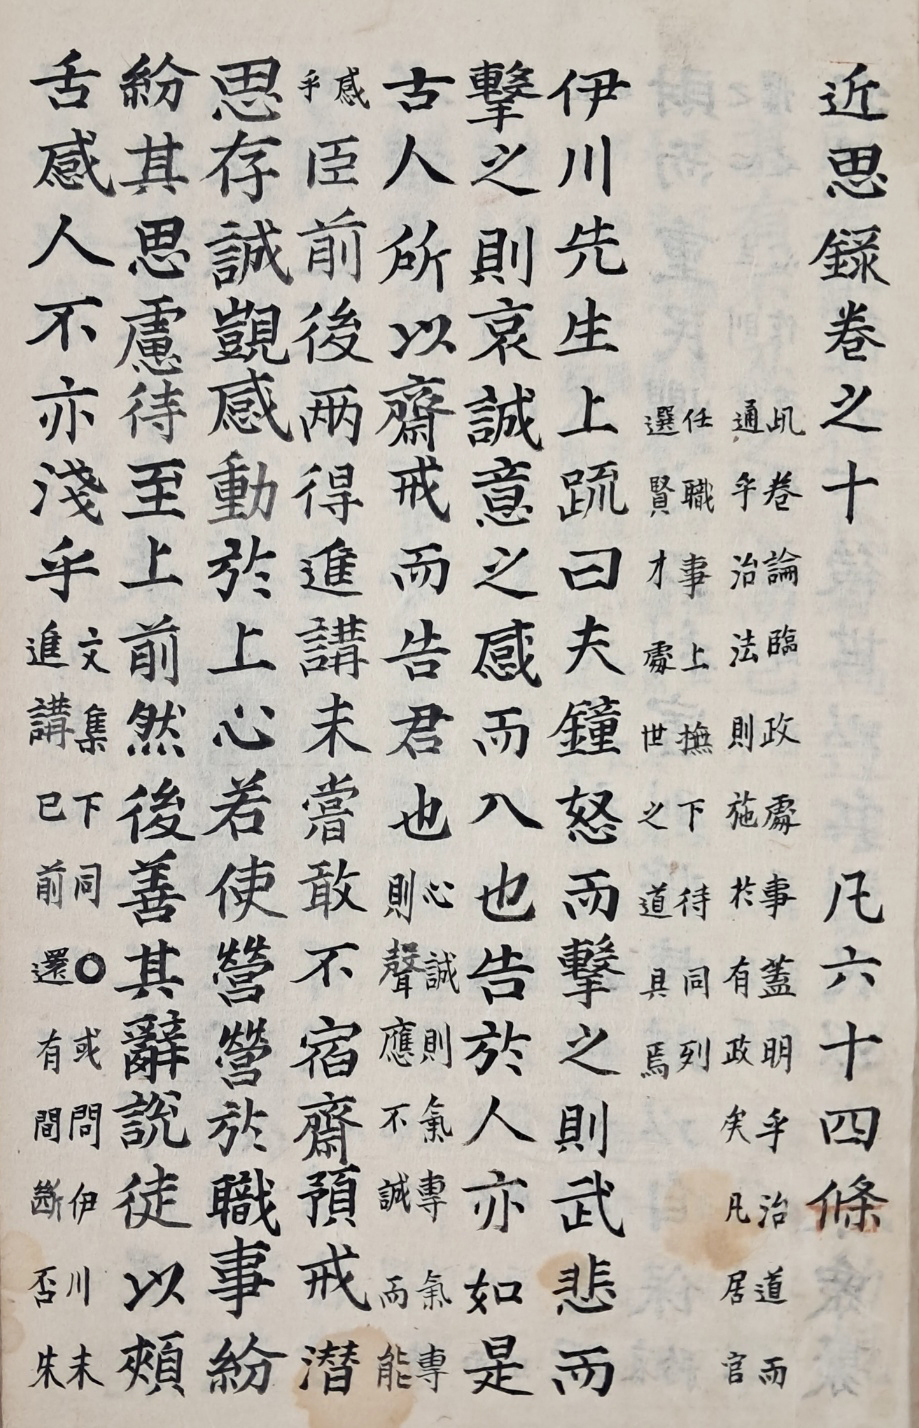 近思録卷之十 凡六十四條
此卷論臨政處事蓋明乎治道而
通乎治法則施於有政矣凡居官
任職事上撫下待同列
選賢才處世之道具焉
伊川先生上疏曰夫鐘怒而擊之則武悲而
擊之則哀誠意之感而入也告於人亦如是
古人所以齋戒而告君也
心誠則氣專氣專
則聲應不誠而能
感
乎
臣前後兩得進講未嘗敢不宿齋預戒潜
思存誠覬感動於上心若使營營於職事紛
紛其思慮待至上前然後善其辭說徒以頰
舌感人不亦淺乎
文集下同○或問伊川未
進講已前還有間斷否朱